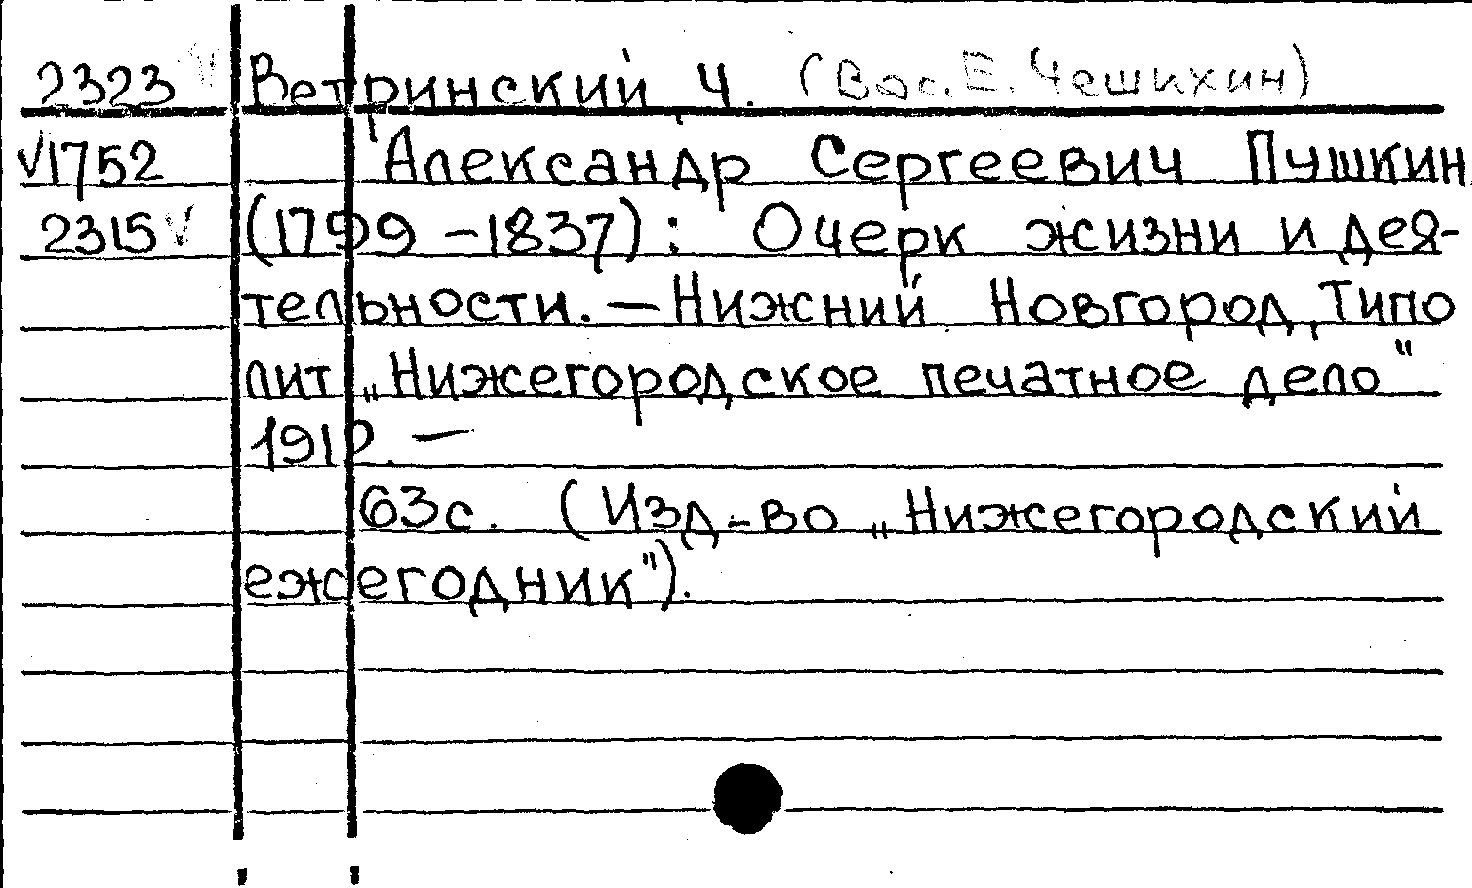 2323 V Ветринский Ч. (Вас. Е. Чешихин)
V1752 Александр Сергеевич Пушкин
2315 V (1799 - 1837): Очерк жизни и дея-
тельности. — Нижний Новгород, Типо
лит „Нижегородское печатное дело"
1912. —
63с. (Изд-во „Нижегородский
ежегодник").